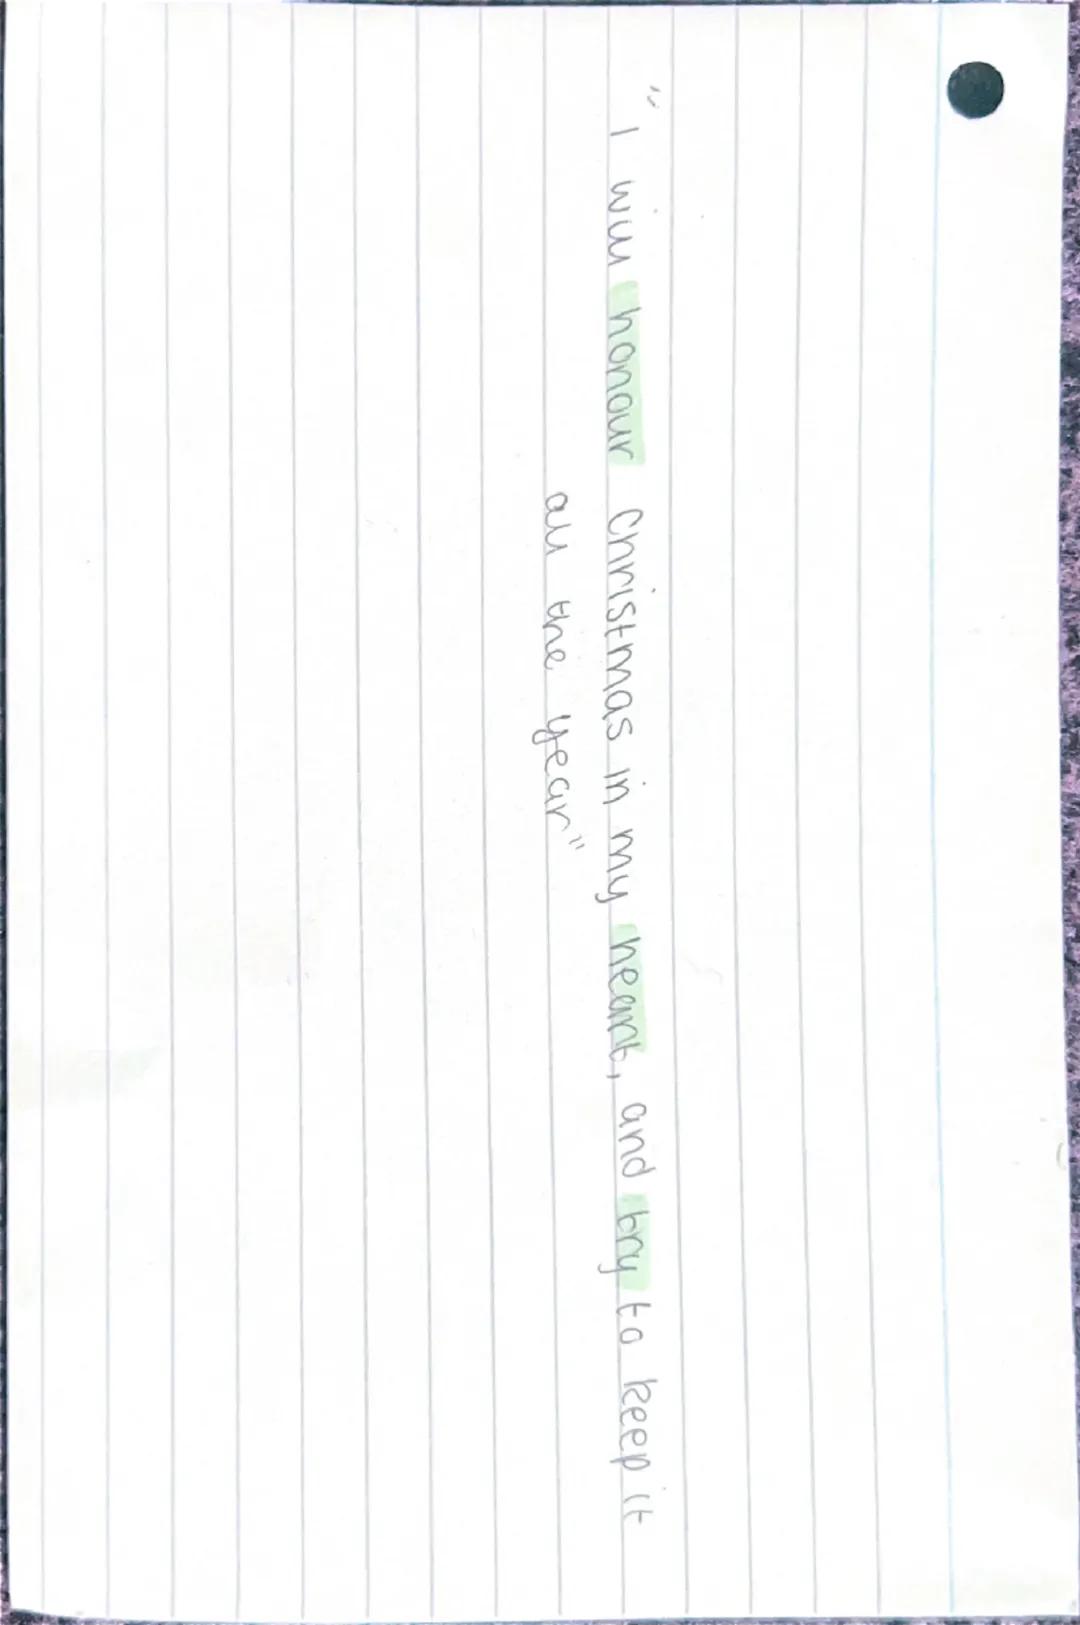 "I will honour Christmas in my heart, and try to keep it
all the year"